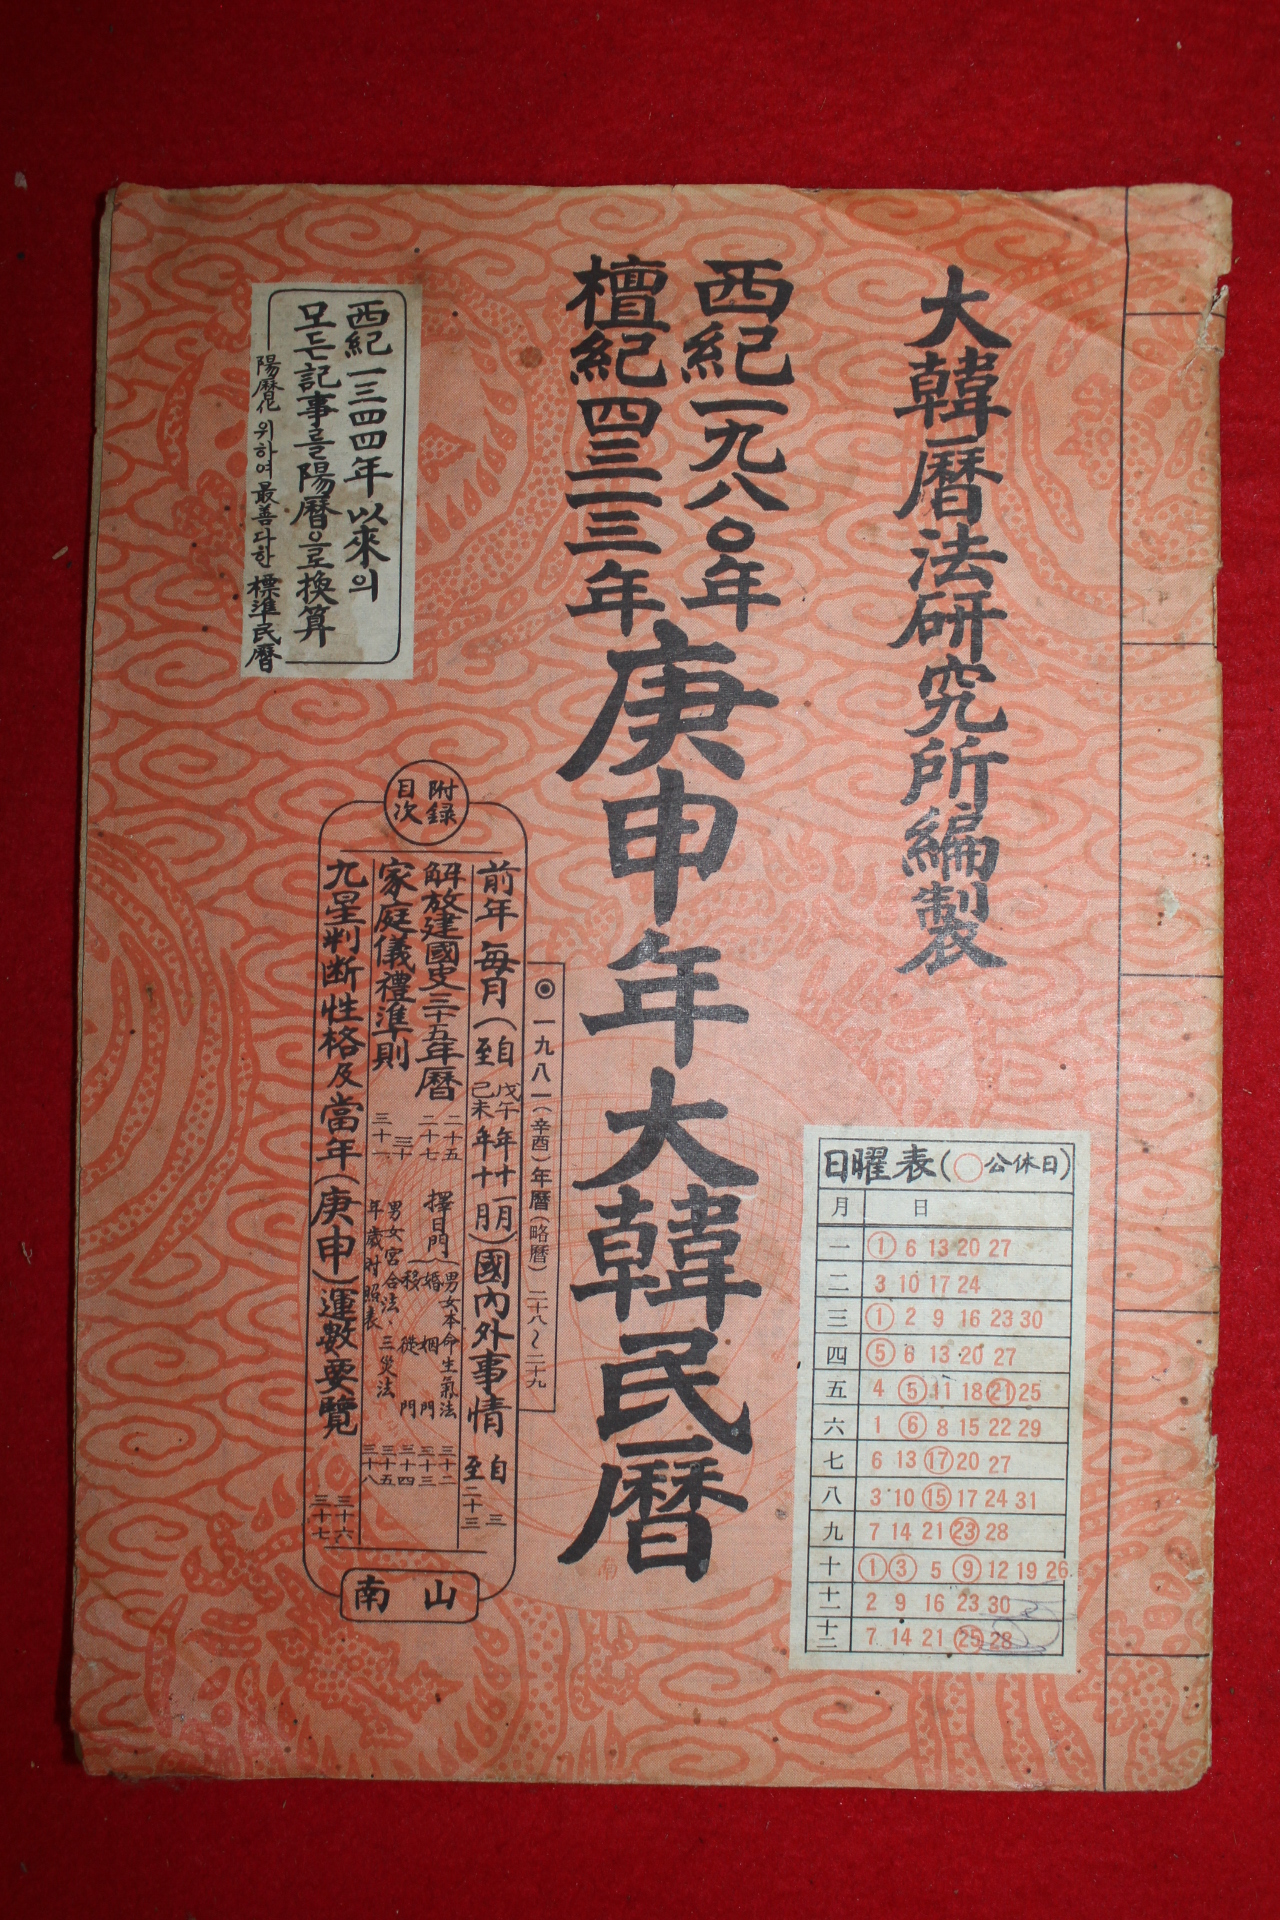 大韓曆法研究所編製
西紀一九八〇年
檀紀四三一三年
庚申年大韓民曆
西紀一三四四年以來의
모든記事를陽曆으로換算
陽曆化 위하여 最善다한 標準民曆
附錄
目次
◉ 一九八一(辛酉)年曆(略曆) 二十八~二十九
前年每月(自戊午年十一月 至己未年十月)國內外事情 自三 至二十三
解放建國史三十五年曆 二十五 二十七
擇日門(男女本命生氣法 三十二
婚姻門 三十三
移徙門 三十四
家庭儀禮準則 三十 三十一
男女宮合法·三災法 三十五
年歲対照表 三十八
九星判断性格及當年(庚申)運數要覽 三十六 三十七
南山
日曜表(○公休日)
月 日
一 1 6 13 20 27
二 3 10 17 24
三 1 2 9 16 23 30
四 5 6 13 20 27
五 4 5 11 18 21 25
六 1 6 8 15 22 29
七 6 13 17 20 27
八 3 10 15 17 24 31
九 7 14 21 23 28
十 1 3 5 9 12 19 26
十一 2 9 16 23 30
十二 7 14 21 25 28
南